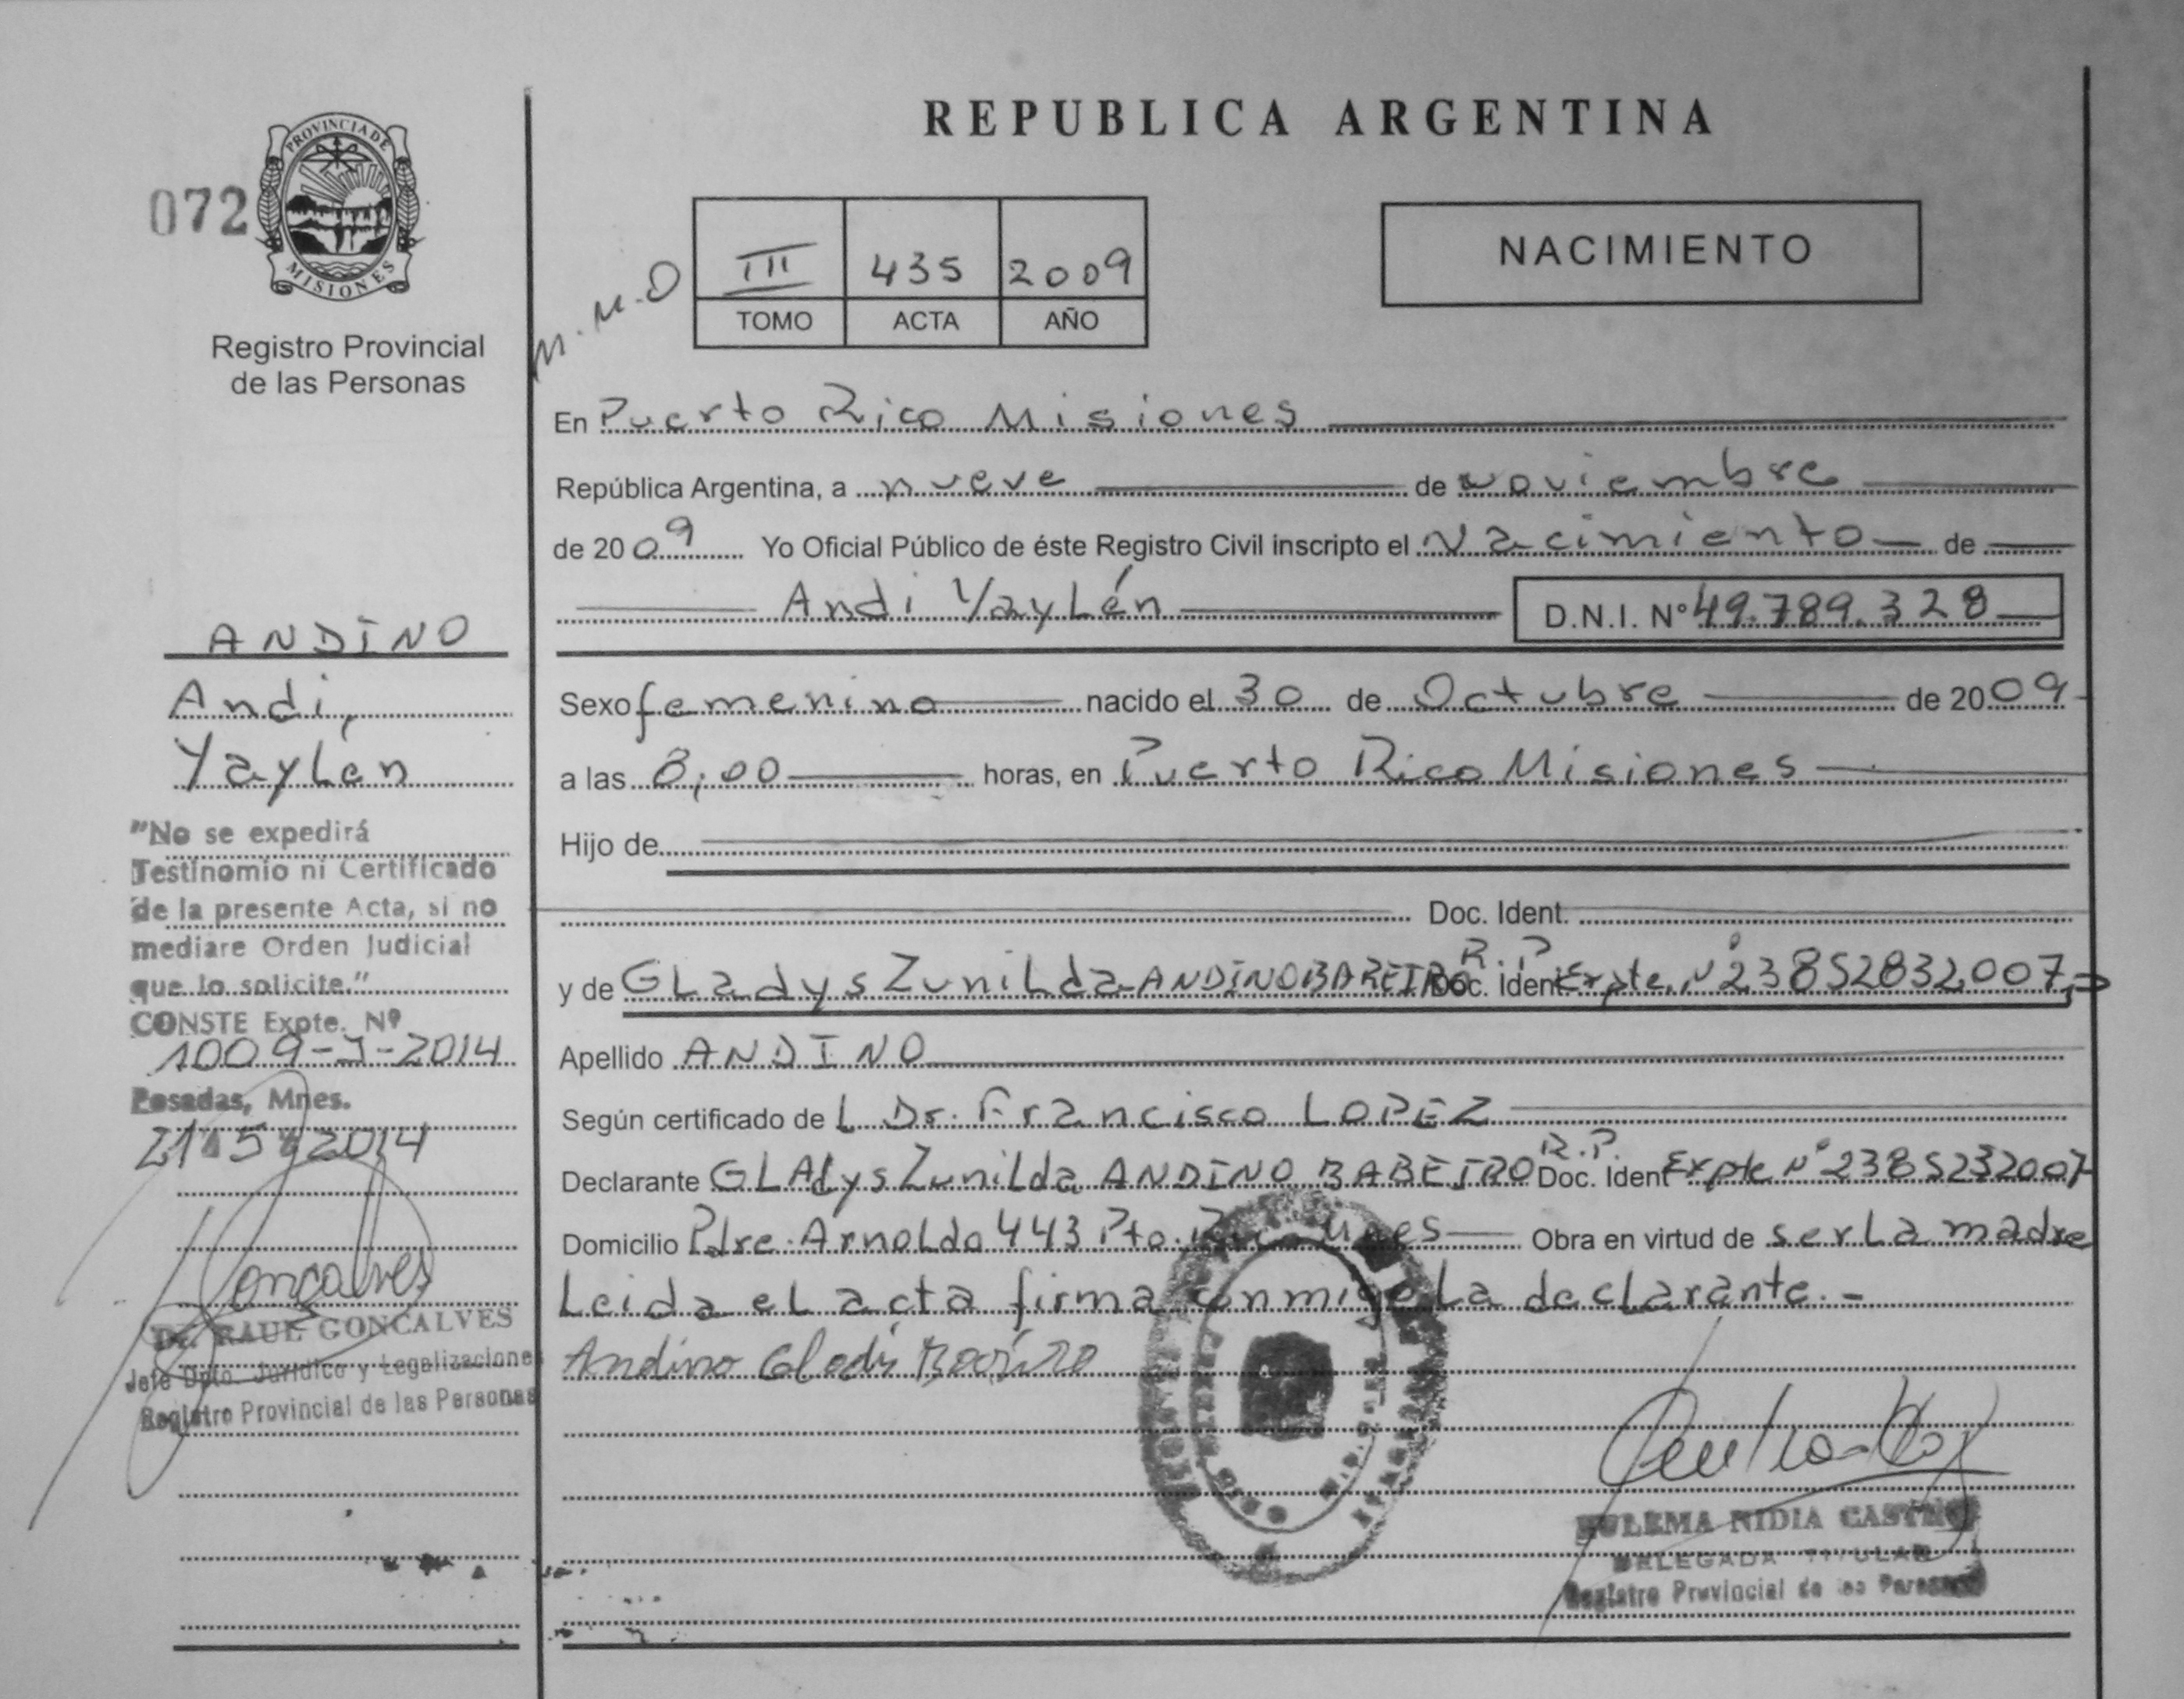 REPUBLICA ARGENTINA
072
PROVINCIA DE
MISIONES
Registro Provincial
de las Personas
M.M.O
III 435 2009
TOMO ACTA AÑO
NACIMIENTO
En Puerto Rico Misiones
República Argentina, a nueve de noviembre
de 2009 Yo Oficial Público de éste Registro Civil inscripto el Nacimiento de
Andi Yaylén D.N.I. Nº 49.789.328
Sexo femenino nacido el 30 de Octubre de 2009
a las 8,00 horas, en Puerto Rico Misiones
Hijo de
Doc. Ident.
R.P
y de GLadys ZuniLda ANDINO BAREIRO Doc. Ident Expte. Nº 23852832007
Apellido ANDINO
Según certificado de L Dr. Francisco LOPEZ
R.P.
Declarante GLAdys ZuniLda ANDINO BABEIRO Doc. Ident Expte Nº 2385232007
Domicilio Pdre. ArnoLdo 443 Pto. Mnes Obra en virtud de ser La madre
Leida eL acta firma conmigo La declarante.-
Andino
ANDINO
Andi,
YayLen
"No se expedirá
Testinomio ni Certificado
de la presente Acta, si no
mediare Orden Judicial
que lo solicite."
CONSTE Expte. Nº
1009-J-2014
Posadas, Mnes.
21 5 2014
Goncalves
Dr. RAUL GONCALVES
Jefe Dpto. Jurídico y Legalizacione
Registro Provincial de las Personas
ZULEMA NIDIA CASTRO
DELEGADA TITULAR
Registro Provincial de las Personas